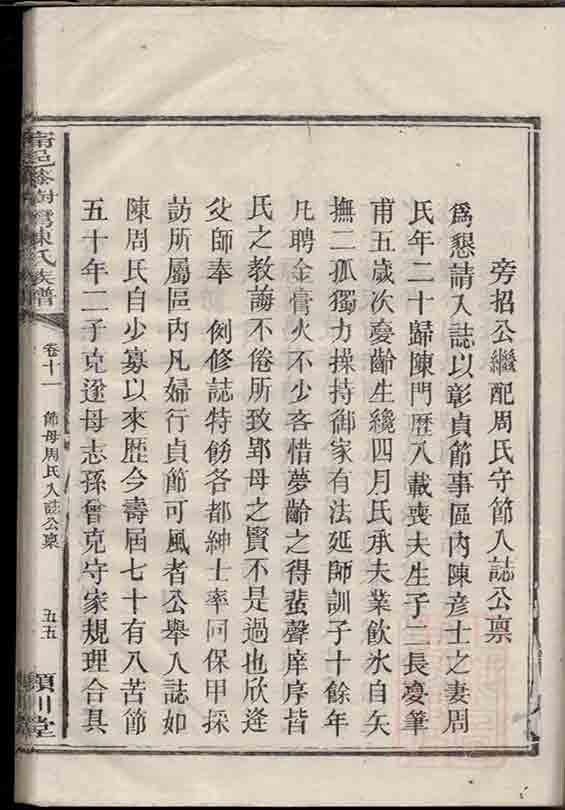 旁招公繼配周氏守節入誌公稟
為懇請入誌以彰貞節事區內陳彥士之妻周
氏年二十歸陳門歷八載喪夫生子二長夢筆
甫五歲次夢齡生纔四月氏承夫業飲氷自矢
撫二孤獨力操持御家有法延師訓子十餘年
凡聘金膏火不少吝惜夢齡之得蜚聲庠序皆
氏之教誨不倦所致鄂母之賢不是過也欣逢
父師奉 例修誌特飭各都紳士率同保甲採
訪所屬區內凡婦行貞節可風者公舉入誌如
陳周氏自少寡以來歷今壽屆七十有八苦節
五十年二子克遂母志孫曾克守家規理合具
甯邑 樹灣陳氏族譜
卷十一
節母周氏入誌公稟
五五
潁川堂